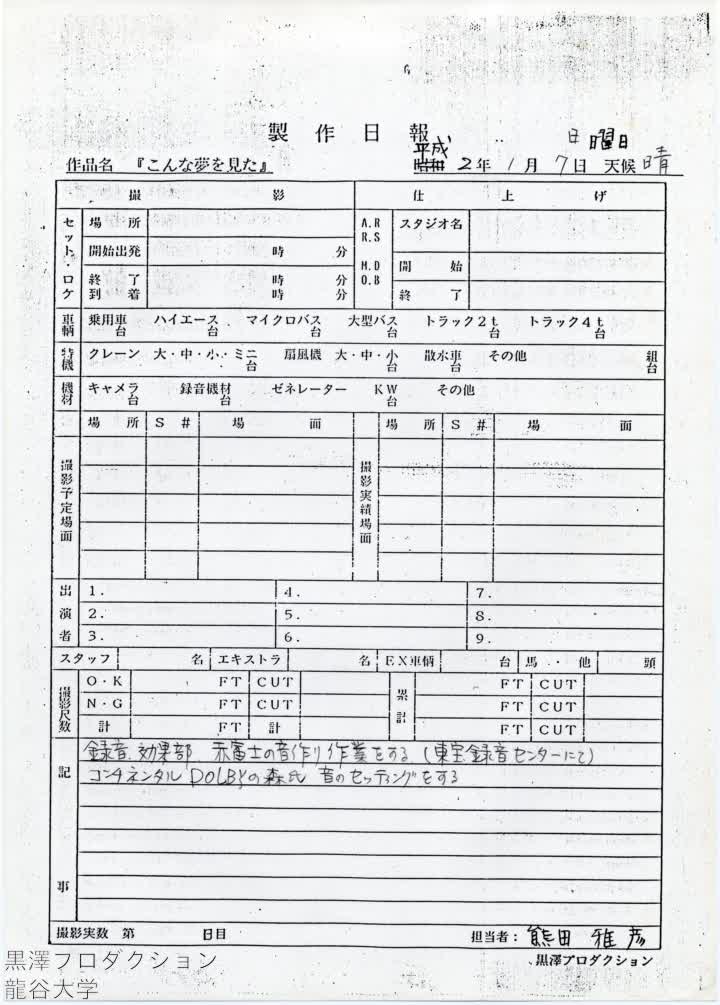 製作日報
日曜日
作品名 『こんな夢を見た』 平成 昭和 2年 1月 7日 天候 晴
撮影 仕上げ
セット・ロケ 場所 A.R R.S M.D O.B スタジオ名
開始出発 時 分 開始
終了 時 分 終了
到着 時 分
車輌 乗用車 台 ハイエース 台 マイクロバス 台 大型バス 台 トラック2t 台 トラック4t 台
特機 クレーン 大・中・小・ミニ 台 扇風機 大・中・小 台 散水車 台 その他 組 台
機材 キャメラ 台 録音機材 台 ゼネレーター KW 台 その他
場所 S# 場面 場所 S# 場面
撮影予定場面 撮影実績場面
出演者 1. 4. 7.
2. 5. 8.
3. 6. 9.
スタッフ 名 エキストラ 名 EX車輌 台 馬・他 頭
撮影尺数 O・K FT CUT 累計 FT CUT
N・G FT CUT FT CUT
計 FT 計 FT CUT
記事 録音、効果部、赤富士の音作り作業をする。(東宝録音センターにて)
コンチネンタル DOLBYの森氏 音のセッティングをする
撮影実数 第 日目 担当者: 熊田 雅彦
黒澤プロダクション
黒澤プロダクション
龍谷大学